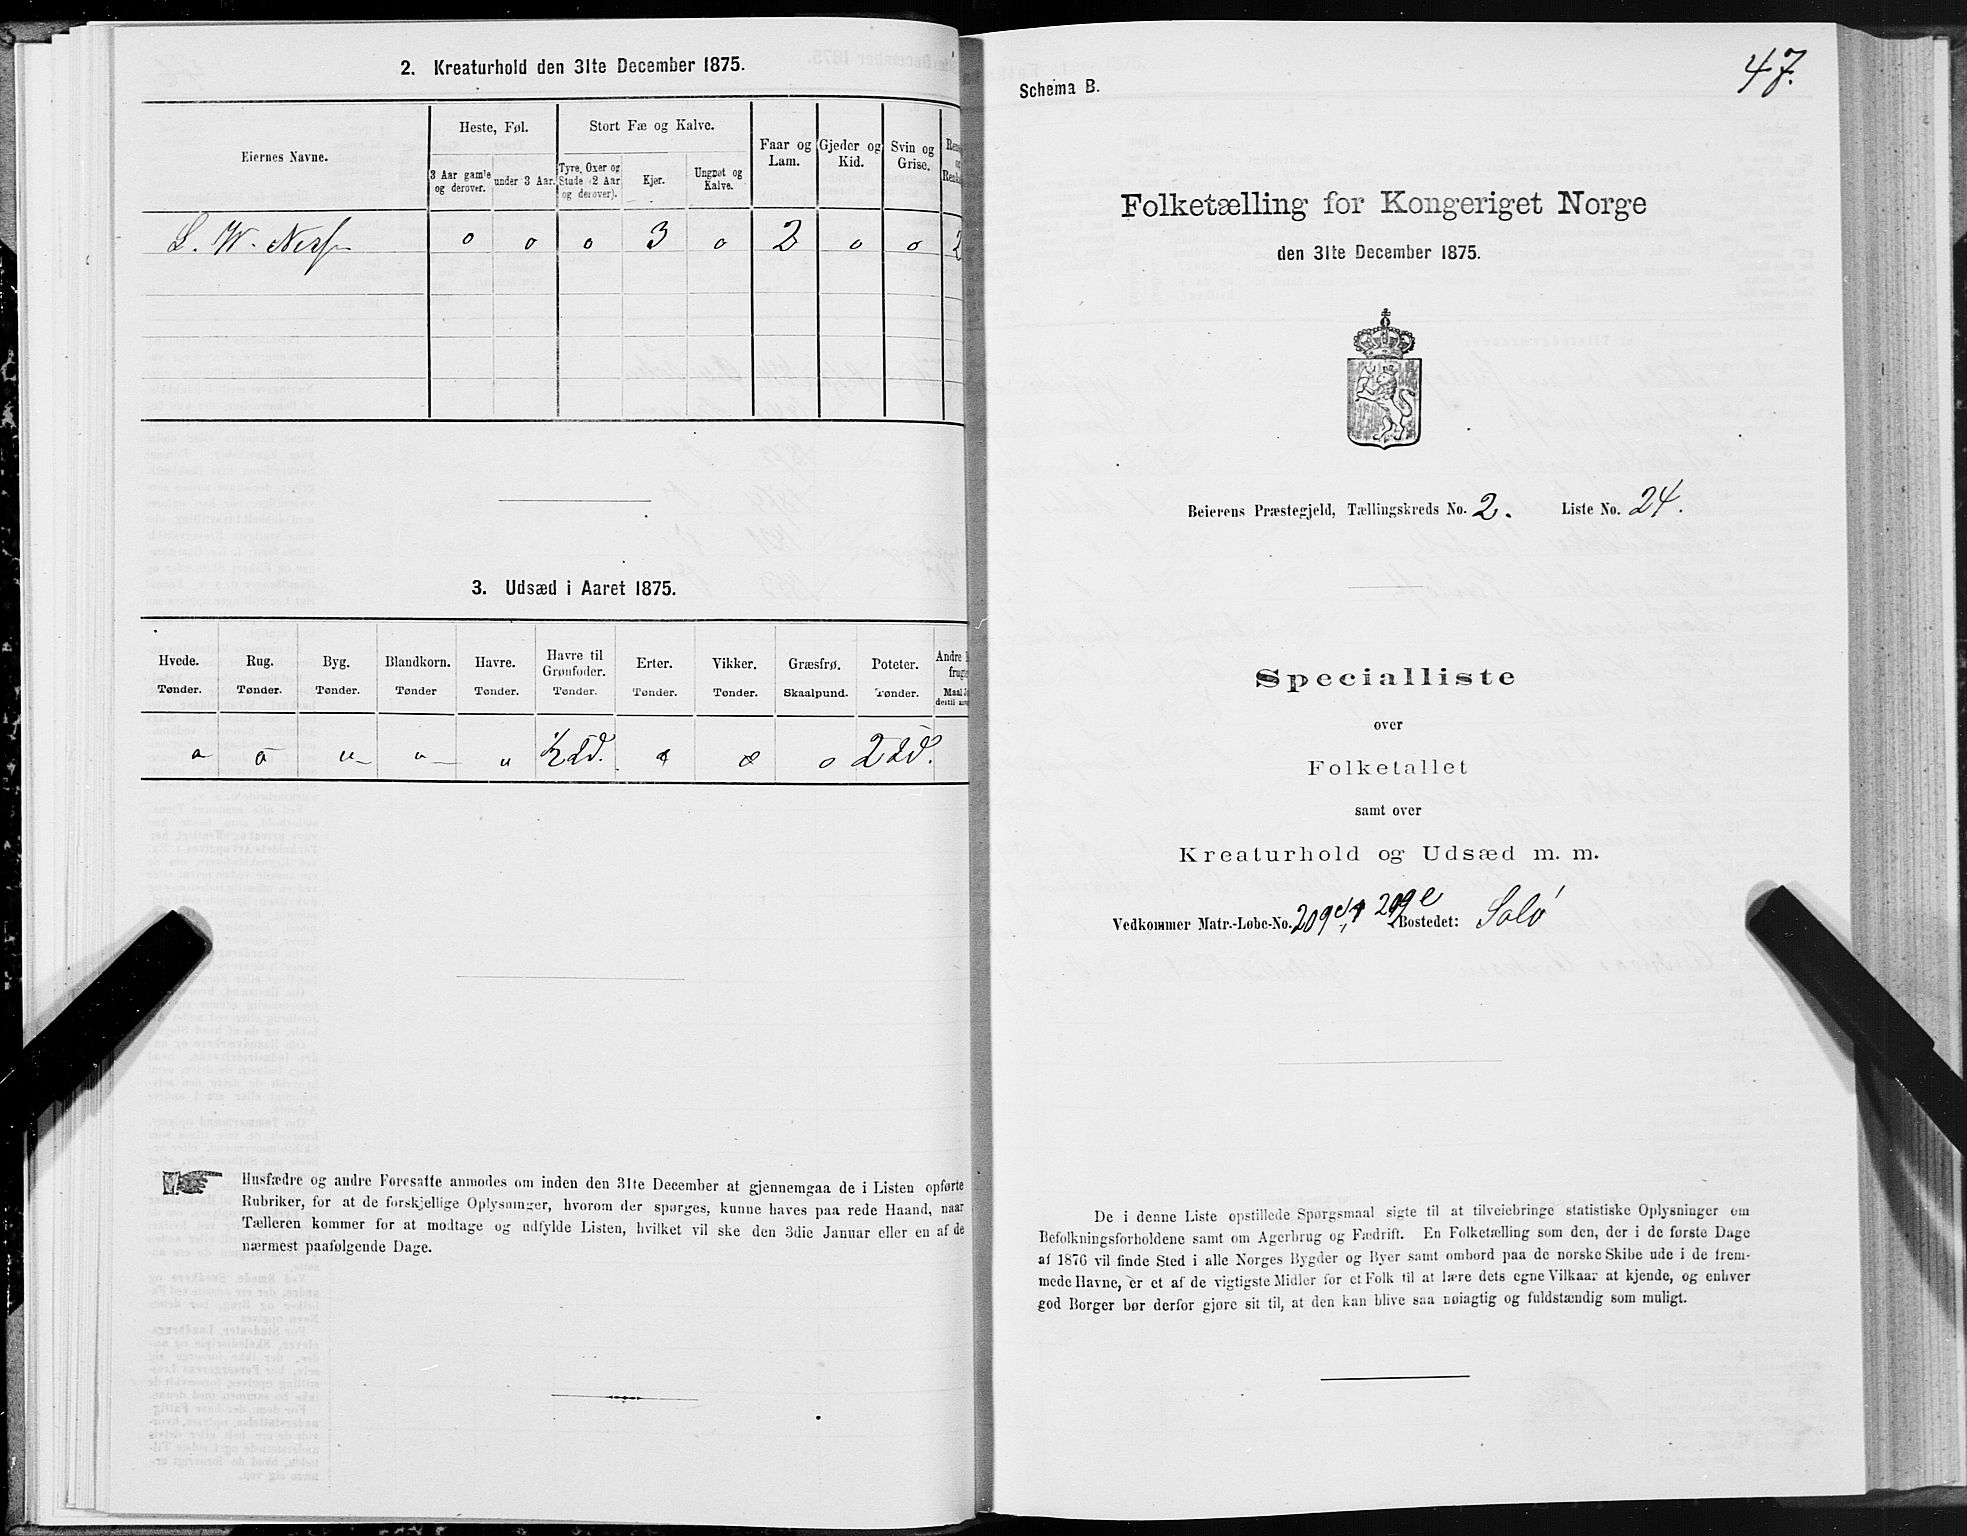 2. Kreaturhold den 31te December 1875.
Eiernes Navne.
Heste, Føl.
3 Aar gamle og derover.
under 3 Aar.
Stort Fæ og Kalve.
Tyre, Oxer og Stude (2 Aar og derover).
Kjør.
Ungnøt og Kalve.
Faar og Lam.
Gjeder og Kid.
Svin og Grise.
L. W. o o o 3 o 2 o o 2
3. Udsæd i Aaret 1875.
Hvede. Rug. Byg. Blandkorn. Havre. Havre til Grønfoder. Erter. Vikker. Græsfrø. Poteter. Andre
Tønder. Tønder. Tønder. Tønder Tønder. Tønder. Tønder. Tønder. Skaalpund. Tønder.
o o " " " ½ Td. o o o 2 Td.
Husfædre og andre Foresatte anmodes om inden den 31te December at gjennemgaa de i Listen opførte
Rubriker, for at de forskjellige Oplysninger, hvorom der spørges, kunne haves paa rede Haand, naar
Tælleren kommer for at modtage og udfylde Listen, hvilket vil ske den 3die Januar eller en af de
nærmest paafølgende Dage.
47.
Schema B.
Folketælling for Kongeriget Norge
den 31te December 1875.
Beierens Præstegjeld, Tællingskreds No. 2. Liste No. 24.
Specialliste
over
Folketallet
samt over
Kreaturhold og Udsæd m. m.
Vedkommer Matr.-Løbe-No. 209d, 209e Bostedet:
De i denne Liste opstillede Spørgsmaal sigte til at tilveiebringe statistiske Oplysninger om
Befolkningsforholdene samt om Agerbrug og Fædrift. En Folketælling som den, der i de første Dage
af 1876 vil finde Sted i alle Norges Bygder og Byer samt ombord paa de norske Skibe ude i de frem-
mede Havne, er et af de vigtigste Midler for et Folk til at lære dets egne Vilkaar at kjende, og enhver
god Borger bør derfor gjøre sit til, at den kan blive saa nøiagtig og fuldstændig som muligt.